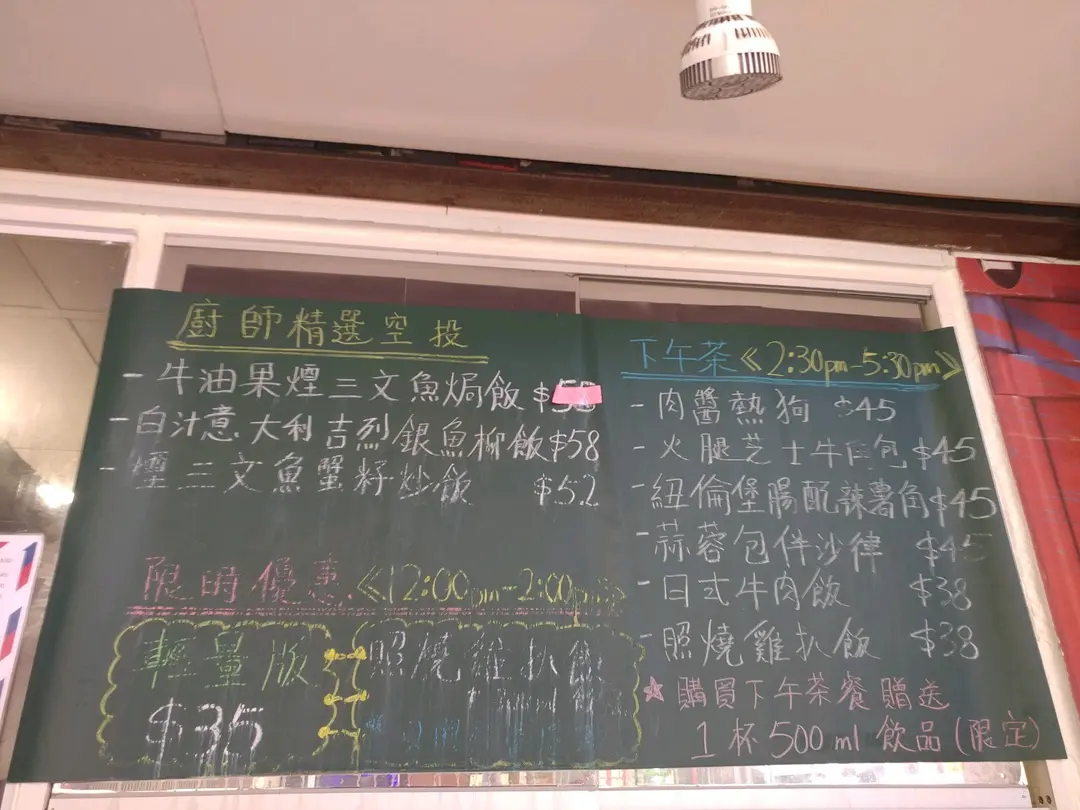 廚師精選空投
- 牛油果煙三文魚焗飯 $
- 白汁意大利吉烈銀魚柳飯 $58
- 煙三文魚蟹籽炒飯 $52
限時優惠《12:00pm-2:00pm》
輕量版
$35
照燒雞扒飯
下午茶《2:30pm-5:30pm》
- 肉醬熱狗 $45
- 火腿芝士牛角包 $45
- 紐倫堡腸配辣薯角 $45
- 蒜蓉包伴沙律 $45
- 日式牛肉飯 $38
- 照燒雞扒飯 $38
☆ 購買下午茶餐贈送
1杯 500ml 飲品 (限定)